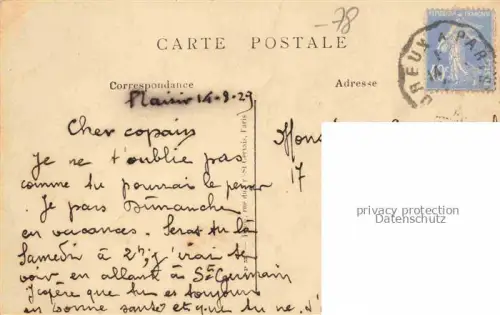 -78
CARTE POSTALE
Correspondance
Adresse
Plaisir 14-8-29
DREUX A PARIS
Cher copain
Je ne t'oublie pas
comme tu pourrais le penser
. Je pars Dimanche
en vacances. Seras tu là
Samedi à 2h; j'irai te
voir en allant à St Germain
J'espère que tu es toujours
en bonne santé et que tu ne
17
privacy protection
Datenschutz